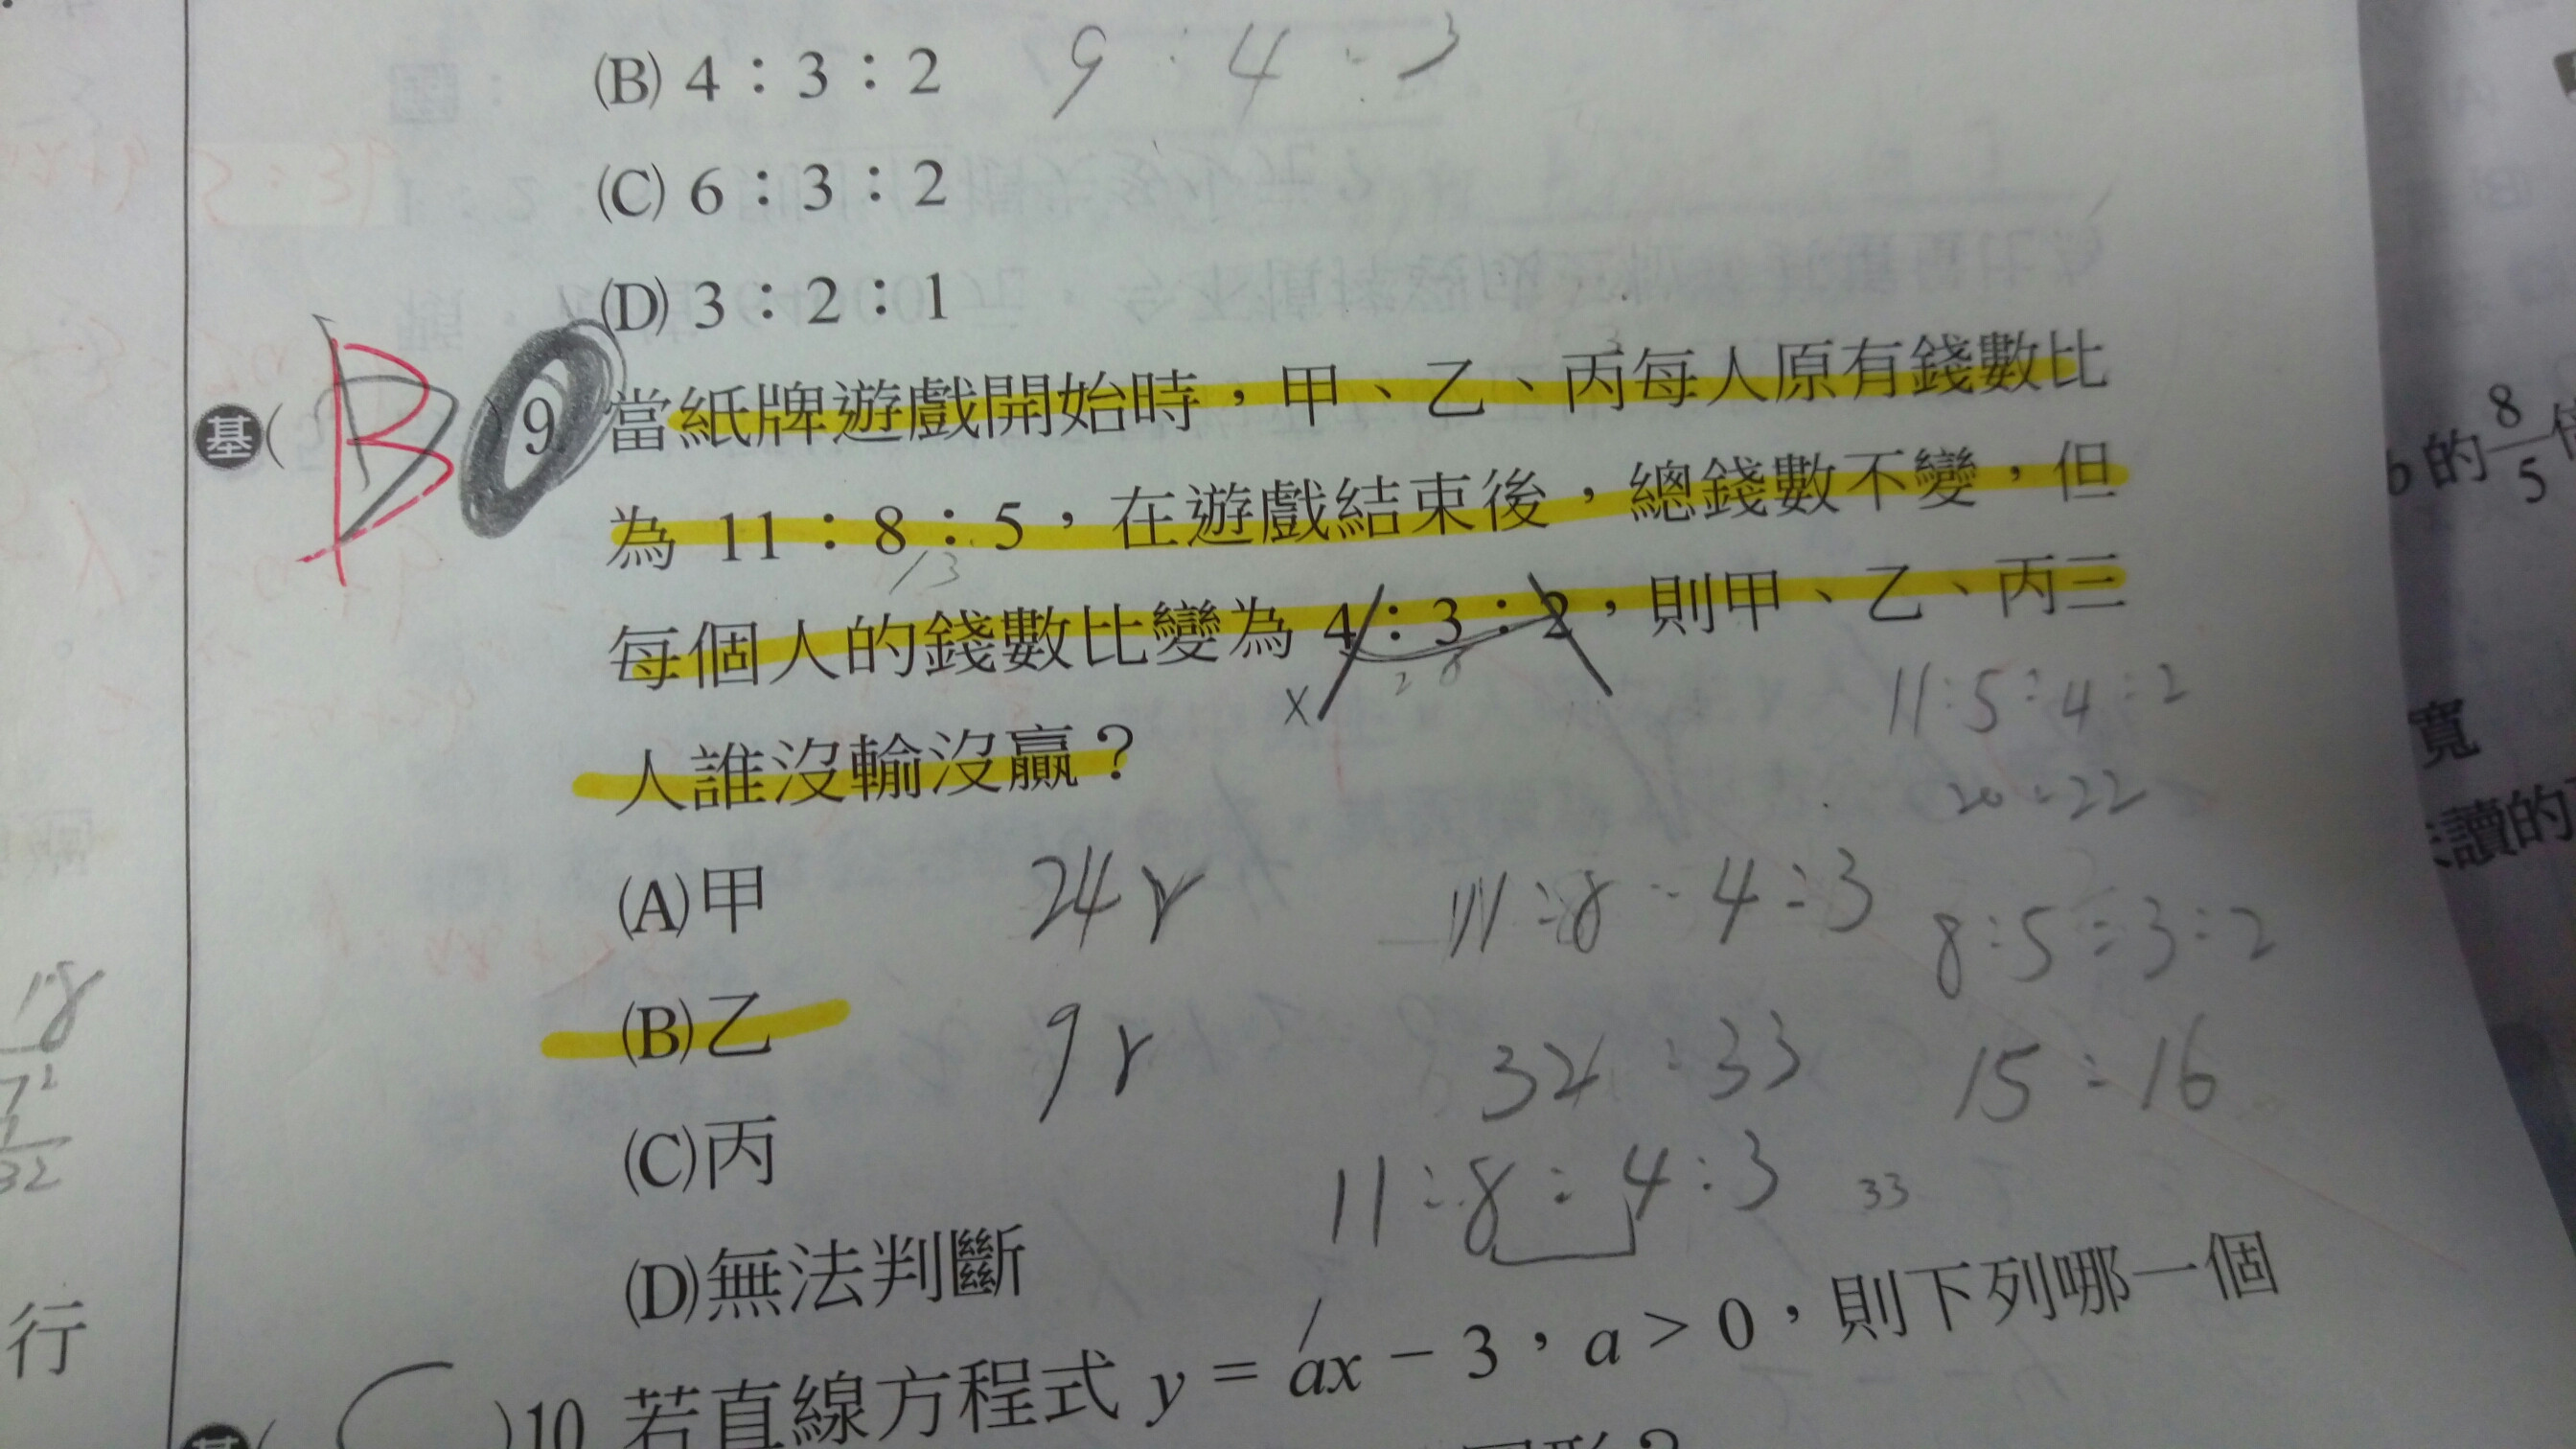 (B) 4：3：2 9：4：3
(C) 6：3：2
(D) 3：2：1
基( B )9. 當紙牌遊戲開始時，甲、乙、丙每人原有錢數比
為 11：8：5，在遊戲結束後，總錢數不變，但
13
每個人的錢數比變為 4：3：2，則甲、乙、丙三
x
11:5=4:2
人誰沒輸沒贏？
20=22
(A)甲 24r 11:8=4:3
8:5=3:2
(B)乙 9r 32:33 15=16
(C)丙
11:8=4:3 33
(D)無法判斷
基( )10. 若直線方程式 y = ax − 3，a > 0，則下列哪一個
b 的 8/5
寬
讀的
18
32
行